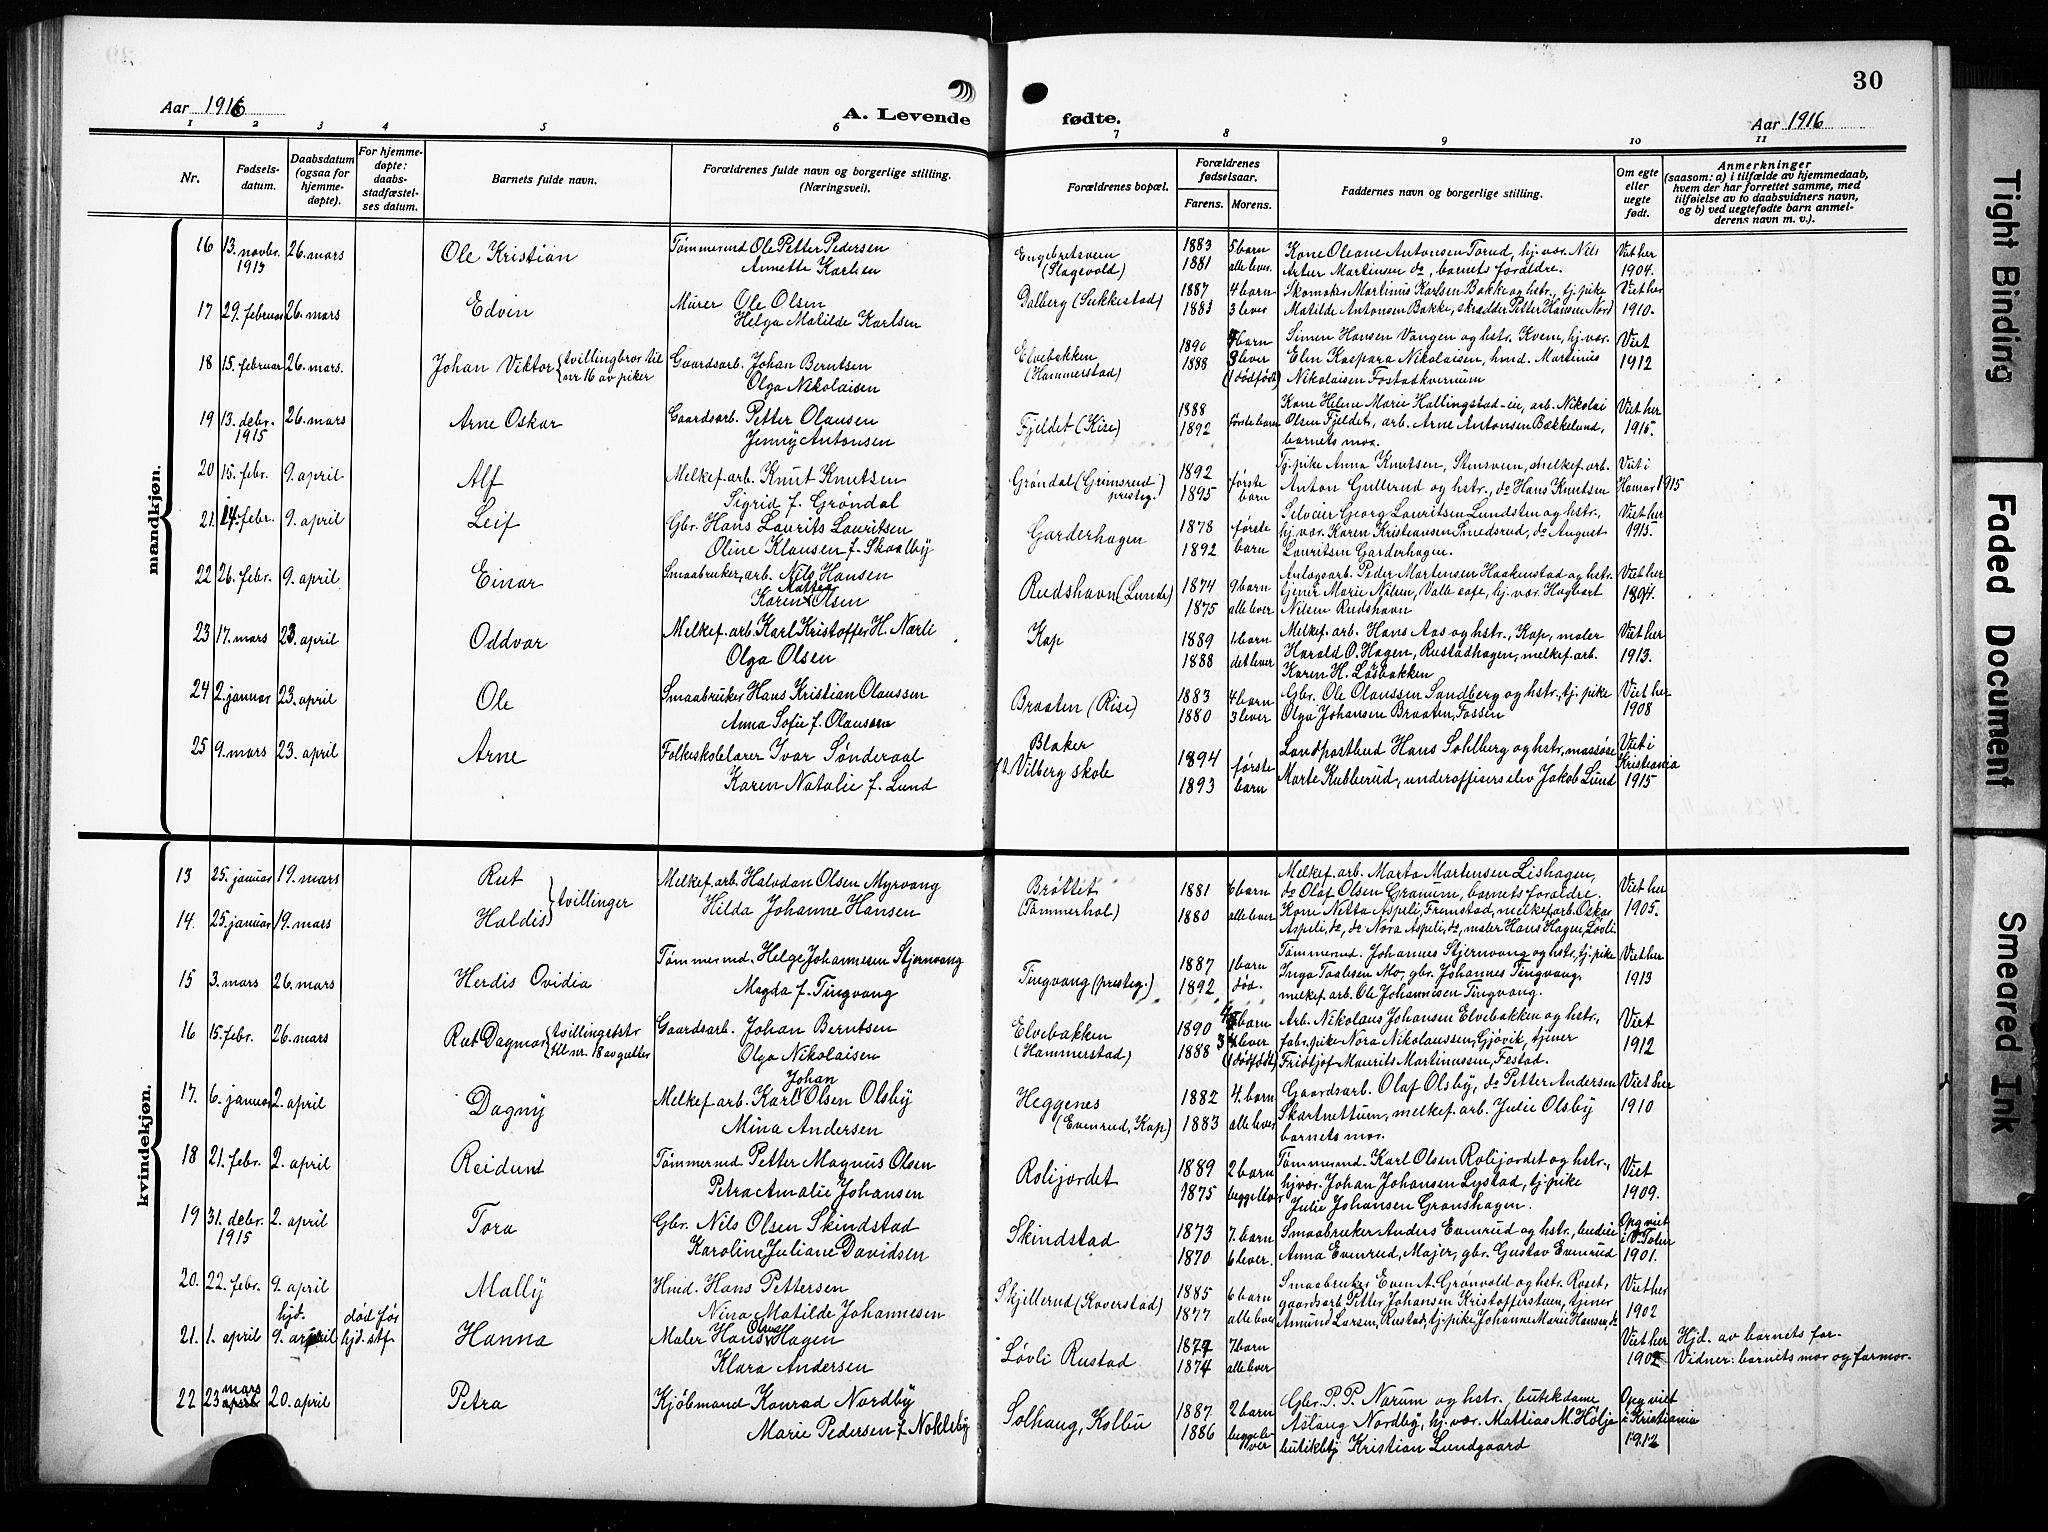 30
Aar 1916
A. Levende
fødte.
Aar 1916
1 2 3 4 5 6 7 8 9 10 11
Nr.
Fødsels-
datum.
Daabsdatum
(ogsaa for
hjemme-
døpte).
For hjemme-
døpte:
daabs-
stadfæstel-
ses datum.
Barnets fulde navn.
Forældrenes fulde navn og borgerlige stilling.
(Næringsvei).
Forældrenes bopæl.
Forældrenes
fødselsaar.
Farens. Morens.
Faddernes navn og borgerlige stilling.
Om egte
eller
uegte
født.
Anmerkninger
(saasom: a) i tilfælde av hjemmedaab,
hvem der har forrettet samme, med
tilføielse av to daabsvidners navn,
og b) ved uegtefødte barn anmel-
derens navn m. v.).
mandkjøn.
16 13. novbr. 26. mars Ole Kristian Tømmermd Ole Petter Pedersen Engebretsveen 1883 5 barn Kone Oleane Antonsen Torud, hj. vær. Nils Viet her
1915 Annette Karlsen (Slagsvold) 1881 alle lever. Artur Martinsen do, barnets forældre. 1904.
17 29. februar 26. mars Edvin Murer Ole Olsen Dalberg (Sukkestad) 1887 4 barn Skomaker Martinus Karlsen Bakke og hstr., tj. pike Viet her
Helga Matilde Karlsen 1883 3 lever Matilde Antonsen Bakke, skrædder Petter Hansen Nord 1910.
18 15. februar 26. mars. Johan Viktor tvillingbror til Gaardsarb. Johan Berntsen Elvebakken 1890 barn Simen Hansen Vangen og hstr. Kvem, hj. vær. Viet
nr 16 av piker Olga Nikolaisen (Hammerstad) 1888 3 lever Elen Kaspara Nikolaisen, hmd. Martinius 1912
(1 dødfødt) Nikolaisen Fostadkvernum
19 13. debr. 26. mars Arne Oskar Gaardsarb. Petter Olausen Fjeldet (Kise) 1888 første barn Kone Helene Marie Hallingstad-eie, arb. Nikolai Viet her
1915 Jenny Antonsen 1892 Olsen Fjeldet, arb. Arne Antonsen Bækkelund, 1915.
barnets mor.
20 15. febr. 9. april Alf Melkef. arb. Knut Knutsen Grøndal (Grimsrud 1892 første Tj. pike Anna Knutsen, Stensveen, melkef. arb. Viet i
Sigrid f. Grøndal presteg.) 1895 barn Anton Gullerud og hstr., do Hans Knutsen Hamar 1915
21. 14. febr. 9. april Leif Gbr. Hans Laurits Lauritsen Garderhagen 1878 første Selveier Georg Lauritsen Lundsten og hstr., Viet her
Oline Klausen f. Skaalby 1892 barn hj. vær. Karen Kristiansen Smedsrud, do August 1915.
Lauritsen Garderhagen.
22 26. febr. 9. april Einar Smaabruker, arb. Nils Hansen Rudshavn (Lunde) 1874 9 barn Anlægsarb. Peder Martensen Haakenstad og hstr. Viet her
Mattea
Karen Olsen 1875 alle lever tjener Marie Nilsen, Valle cafe, hj. vær. Hagbart 1894.
Nilsen Rudshavn
23 17. mars 23. april Oddvar Melkef. arb. Karl Kristoffer H. Narli Kap 1889 1 barn Melkef. arb. Hans Aas og hstr., Kap, maler Viet her
Olga Olsen 1888 det lever Harald O. Hagen, Rustadhagen, melkef. arb. 1913.
Karen H. Løsbakken
24 2. januar 23. april Ole Smaabruker Hans Kristian Olaussen Braaten (Rise) 1883 4 barn Gbr. Ole Olaussen Sandberg og hstr., tj. pike Viet her
Anna Sofie f. Olaussen 1880 3 lever Olga Johansen Braaten, Fossen 1908
25 9. mars 23. april Arne Folkeskolelærer Ivar Sønderaal Blaker 1894 første Landpostbud Hans Sohlberg og hstr, massøse Viet i
Karen Natalie f. Lund Vilberg skole 1893 barn Marte Kublerud, underoffisers elev Jakob Lund Kristiania
1915
kvindekjøn.
13 25. januar 19. mars Rut Melkef. arb. Halvdan Olsen Myrvang Brøttet 1881 6 barn Melkef. arb. Marta Martensen Lishagen, Viet her
tvillinger Hilda Johanne Hansen (Tømmerhol) 1880 alle lever do Olaf Olsen Granum, barnets forældre. 1905.
14 25. januar 19. mars Haldis Kone Netta Aspeli, Fremstad, melkef. arb. Oskar
Aspeli, do, do Nora Aspeli, do, maler Hans Hagen, Løvli
15 3. mars 26. mars Herdis Ovidia Tømmermd. Helge Johannesen Stjernvang Tingvang (presteg.) 1887 1 barn Tømmermd. Johannes Stjernvang og hstr., tj. pike Viet her
Magda f. Tingvang 1892 død. Inga Taalsen Mo, gbr. Johannes Tingvang, 1913
melkef. arb. Ole Johannesen Tingvang.
16 15. febr. 26. mars Rut Dagmar tvillingsstr Gaardsarb. Johan Berntsen Elvebakken 1890 4 barn Arb. Nikolaus Johansen Elvebakken og hstr., Viet
til nr. 18 av gutter Olga Nikolaisen (Hammerstad) 1888 3 lever fabr. pike Nora Nikolaussen, Gjøvik, tjener 1912
(1 dødfødt) Fridtjof Maurits Martinussen, Festad.
17. 6. januar 2. april Dagny Johan
Melkef. arb. Karl Olsen Olsby Heggenes 1882 4. barn Gaardsarb. Olaf Olsby, do Petter Andersen Viet her
Mina Andersen (Evenrud, Kap) 1883 alle lever Skartnettum, melkef. arb. Julie Olsby 1910
barnets mor.
18 21. febr. 2. april Reidunt Tømmermd. Petter Magnus Olsen Rolijordet 1889 2 barn Tømmermd. Karl Olsen Rolijordet og hstr., Viet
Petra Amalie Johansen 1875 begge lever hj. vær. Johan Johansen Lystad, tj. pike 1909.
Julie Johansen Granshagen.
19 31. debr. 2. april Tora Gbr. Nils Olsen Skindstad Skindstad 1873 7. barn Smaabruker Anders Evenrud og hstr., budeie Opg viet
1915 Karoline Juliane Davidsen 1870 6 lever. Anna Evenrud, Majer, gbr. Gustav Evenrud i V. Toten
1901.
20. 22. febr. 9. april Mally Hmd. Hans Pettersen Skjellerud (Kaverstad) 1885 6 barn Smaabruker Even A. Grønvold og hstr. Roset, Viet her
Nina Matilde Johannesen 1877 alle lever gaardsarb. Petter Johansen Kristofferstuen, tjener 1902
Amund Larsen, Rustad, tj. pike Johanne Marie Hansen, do
hjd. død før
21. 1. april 9. april hjd. stf. Hanna Maler Hans Olsen Hagen Løvli Rustad 1877 7 barn Viet her Hjd. av barnets far.
Klara Andersen 1874 alle lever 1902 Vidner: barnets mor og farmor.
mars
22 23 april 20. april Petra Kjøbmand Konrad Nordby Solhaug, Kolbu 1887 2 barn Gbr. P. P. Narum og hstr., butikdame Opg viet
Marie Pedersen f. Nokleby 1886 begge le- Aslaug Nordby, hj. vær. Mattias M. Holje i Kristiania
ver butikbtj Kristian Lundgaard 1912
Tight Binding
Faded Document
Smeared Ink